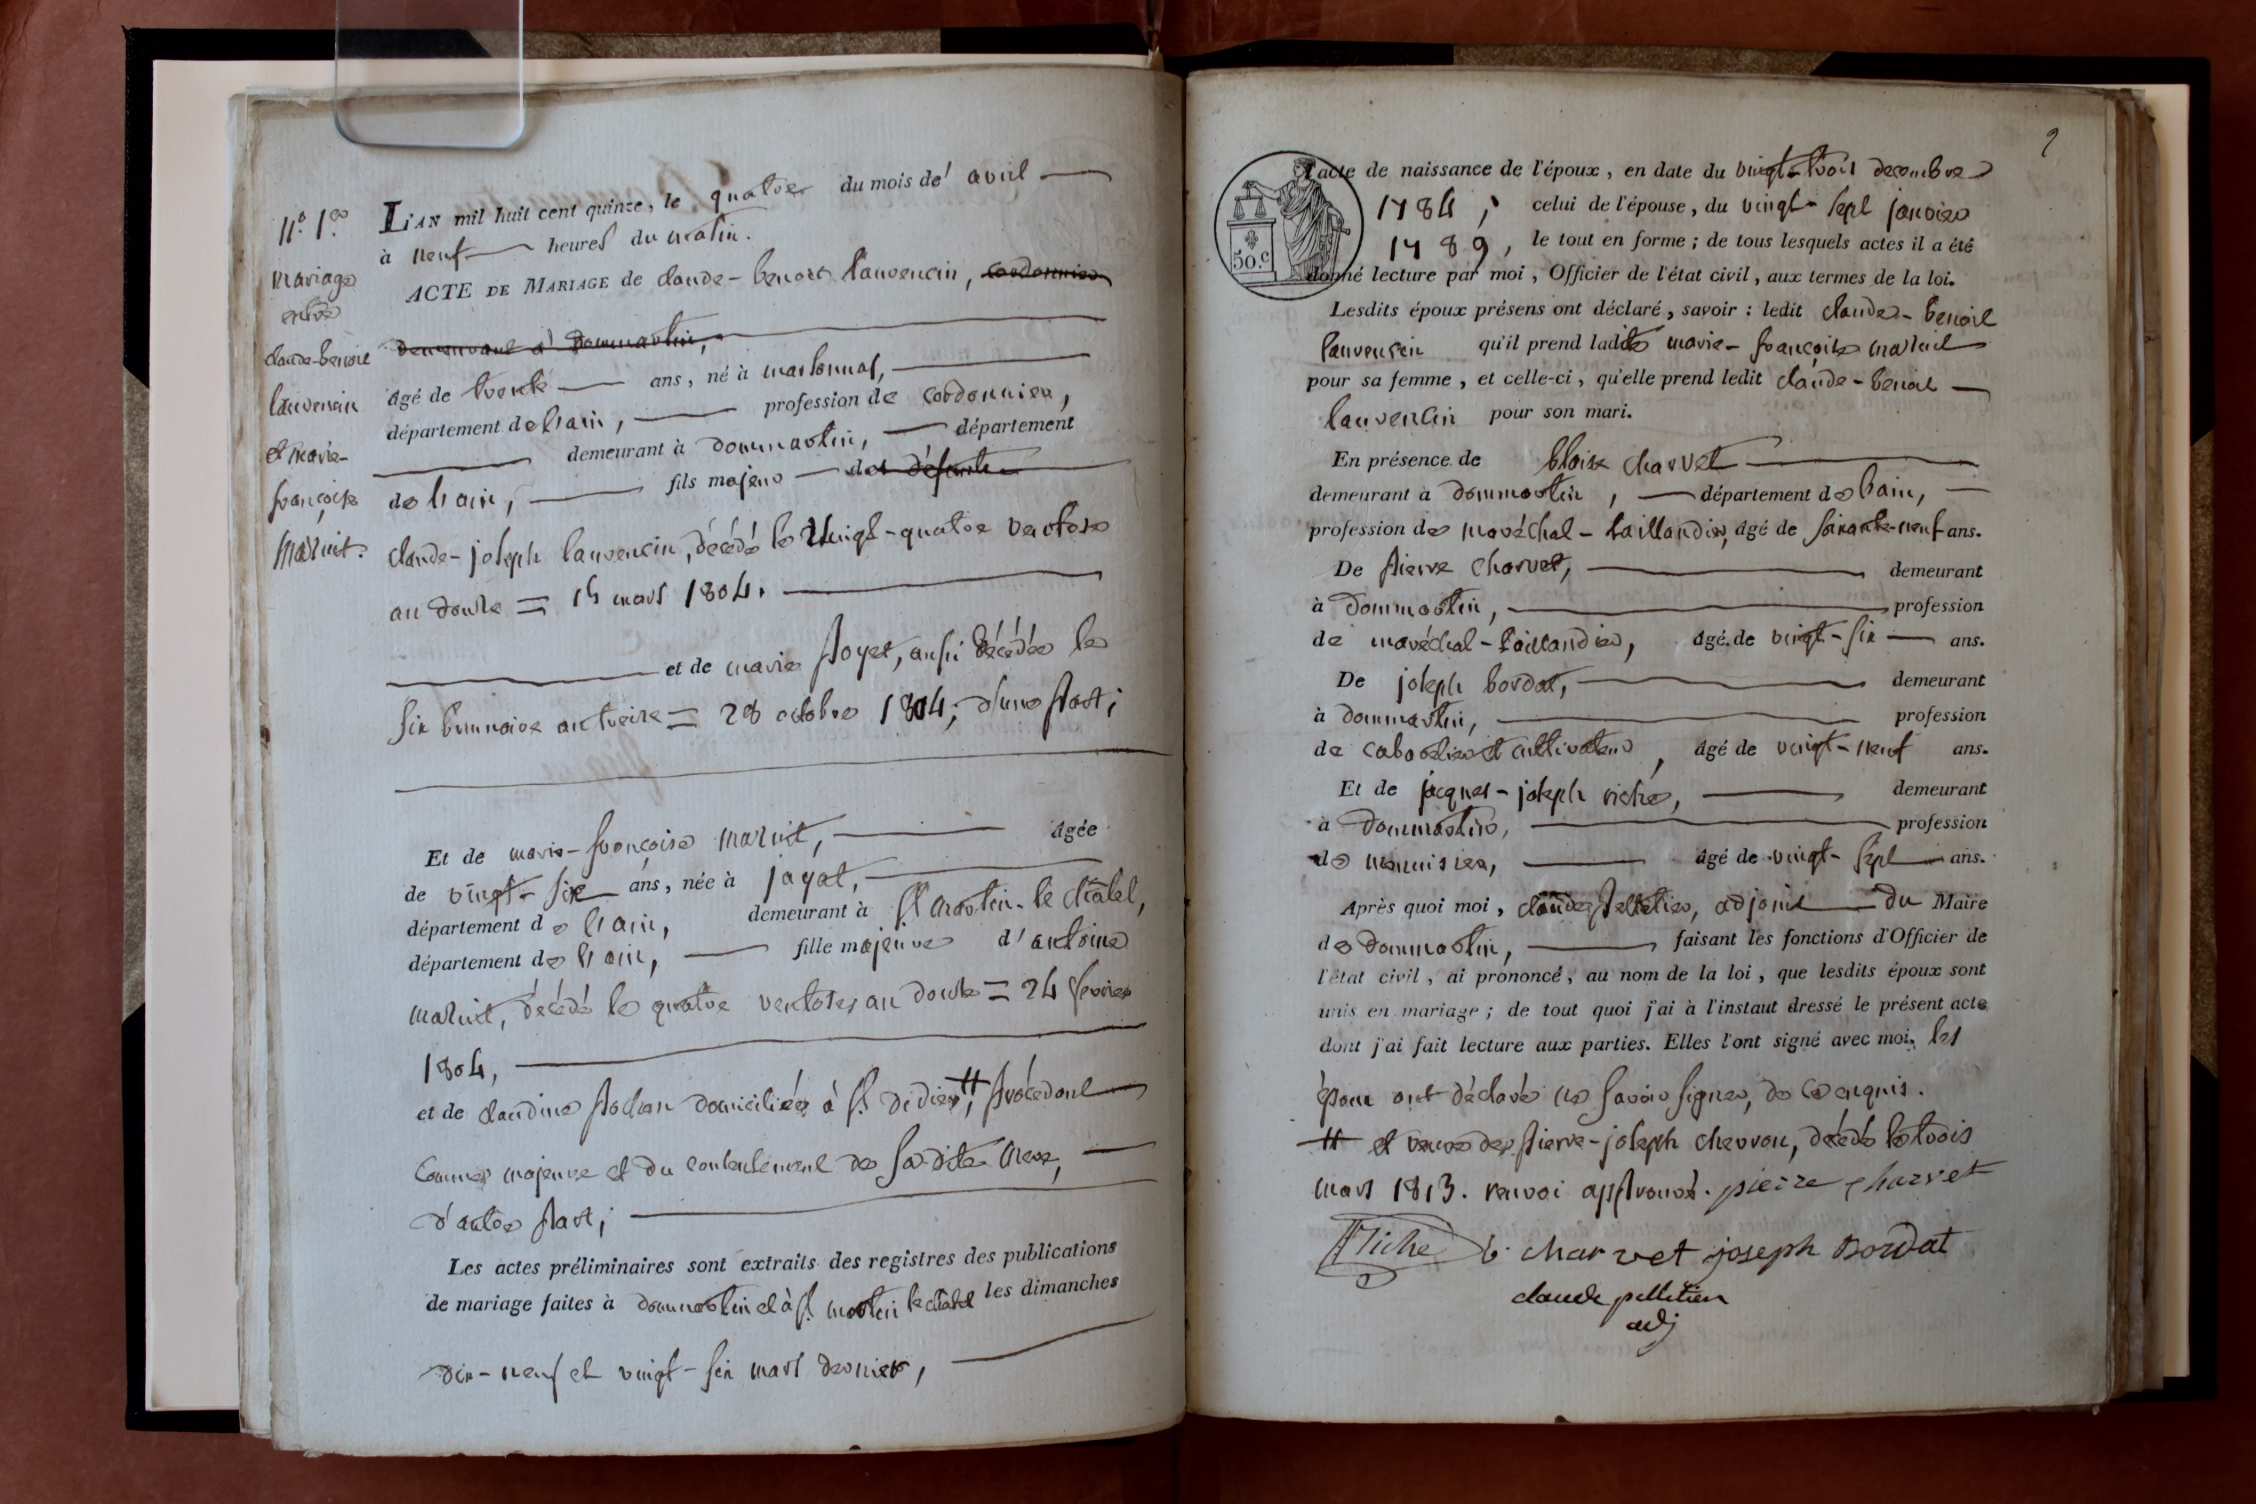 N.º 1.er
mariage
entre
claude-benoit
lauvencin
et marie-
françoise
maruit.
L'AN mil huit cent quinze, le quatre du mois de avril
à neuf heures du matin.
ACTE DE MARIAGE de claude-benoit lauvencin, cordonnier
demeurant à dommartin,
âgé de trente ans, né à marbonnas,
département de l'ain, profession de cordonnier,
demeurant à dommartin, département
de l'ain, fils majeur des défunts
claude-joseph lauvencin, décédé le vingt-quatre ventose
an douze = 15 mars 1804.
et de marie Poyet, aussi décédée le
six brumaire an treize = 28 octobre 1804; d'une part;
Et de marie-françoise maruit, âgée
de vingt-six ans, née à jayat,
département de l'ain, demeurant à St martin-le chatel,
département de l'ain, fille majeure d'antoine
maruit, décédé le quatre ventose an douze = 24 fevrier
1804,
et de claudine Pochon domiciliée à St. didier, # Procedant
comme majeure et du contentement de sa dite mere,
d'autre part;
Les actes préliminaires sont extraits des registres des publications
de mariage faites à dommartin et à St. martin le chatel les dimanches
dix-neuf et vingt-six mars dernier,
9
50.c
l'acte de naissance de l'époux, en date du vingt-trois decembre
1784; celui de l'épouse, du vingt-sept janvier
1789, le tout en forme; de tous lesquels actes il a été
donné lecture par moi, Officier de l'état civil, aux termes de la loi.
Lesdits époux présens ont déclaré, savoir : ledit claude-benoit
lauvencin qu'il prend ladite marie-françoise maruit
pour sa femme, et celle-ci, qu'elle prend ledit claude-benoit
lauvencin pour son mari.
En présence de bloise charvet
demeurant à dommartin, département de l'ain,
profession de maréchal-taillandier, âgé de soixante-neuf ans.
De Pierre Charvet, demeurant
à dommartin, profession
de maréchal-taillandier, âgé de vingt-six ans.
De joseph bordat, demeurant
à dommartin, profession
de cabaretier et cultivateur, âgé de vingt-neuf ans.
Et de jacques-joseph riche, demeurant
à dommartin, profession
de menuisier, âgé de vingt-sept ans.
Après quoi moi, claude Pelletier, adjoint du Maire
de dommartin, faisant les fonctions d'Officier de
l'état civil, ai prononcé, au nom de la loi, que lesdits époux sont
unis en mariage; de tout quoi j'ai à l'instaut dressé le présent acte
dont j'ai fait lecture aux parties. Elles l'ont signé avec moi. les
époux ont déclaré ne savoir signer, de ce enquis.
# et veuve de Pierre-joseph chevron, décédé le trois
mars 1813. renvoi approuvé. pierre charvet
Riche b. charvet joseph Bordat
claude pelletier
adj